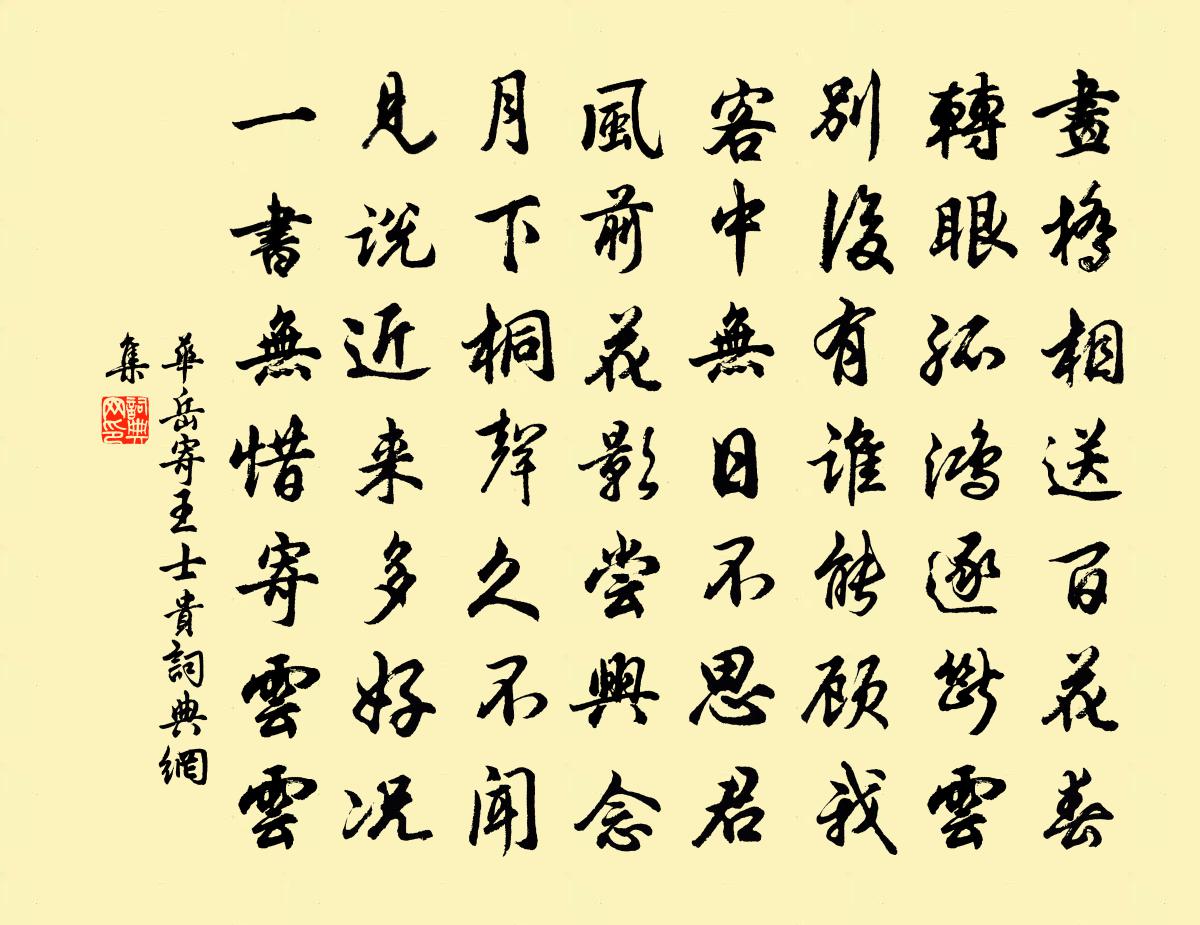 畫橋相送百花春
轉眼孤鴻逐斷雲
別後有誰能顾我
客中無日不思君
風前花影嘗興念
月下桐聲久不闻
見说近来多好况
一書無惜寄雲雲
華岳寄王士貴詞典網
集
詞典
网印